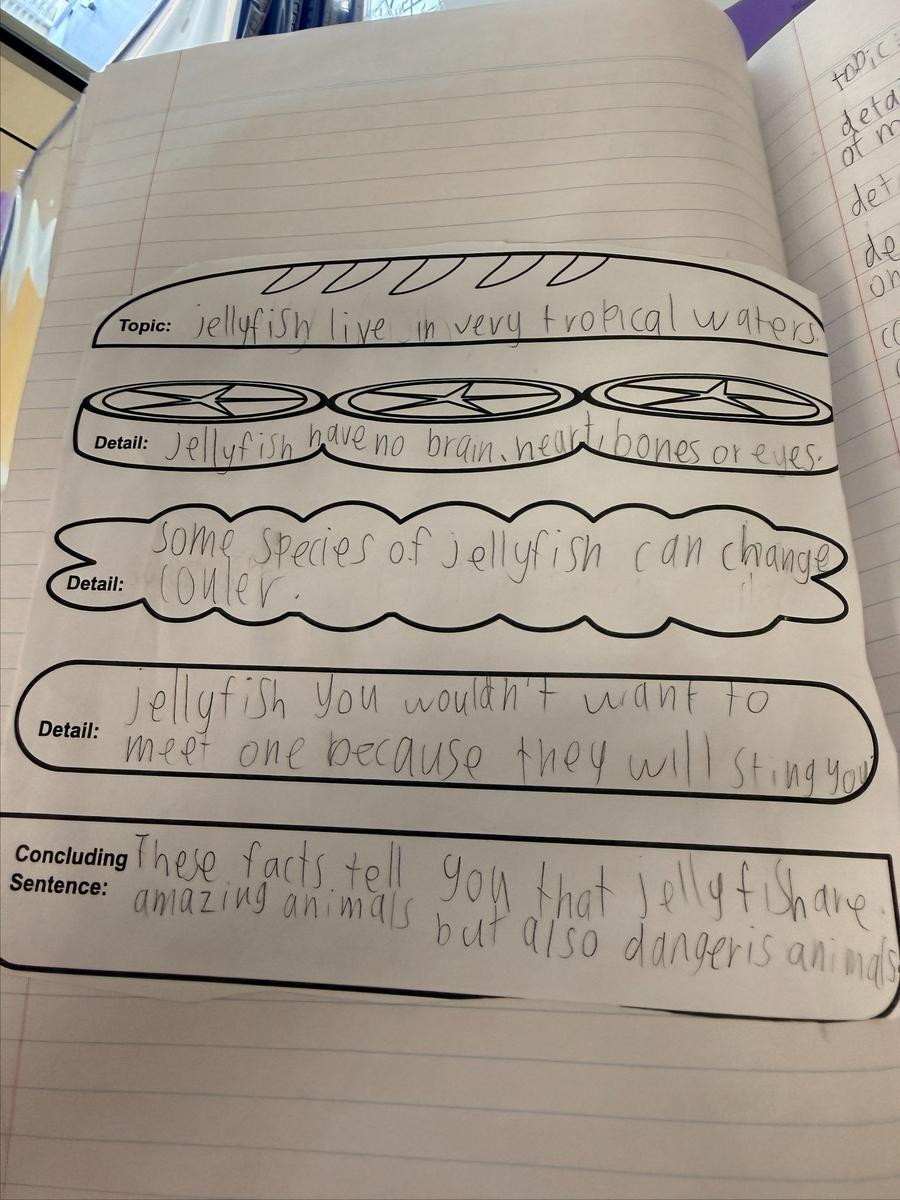 Topic: jellyfish live in very tropical waters.
Detail: Jellyfish have no brain, heart, bones or eyes.
some species of jellyfish can change
Detail: couler.
jellyfish you wouldn't want to
Detail: meet one because they will sting you
Concluding These facts tell you that jelly fish are
Sentence: amazing animals but also dangeris animals.
topic:
deta
of m
det
de
on